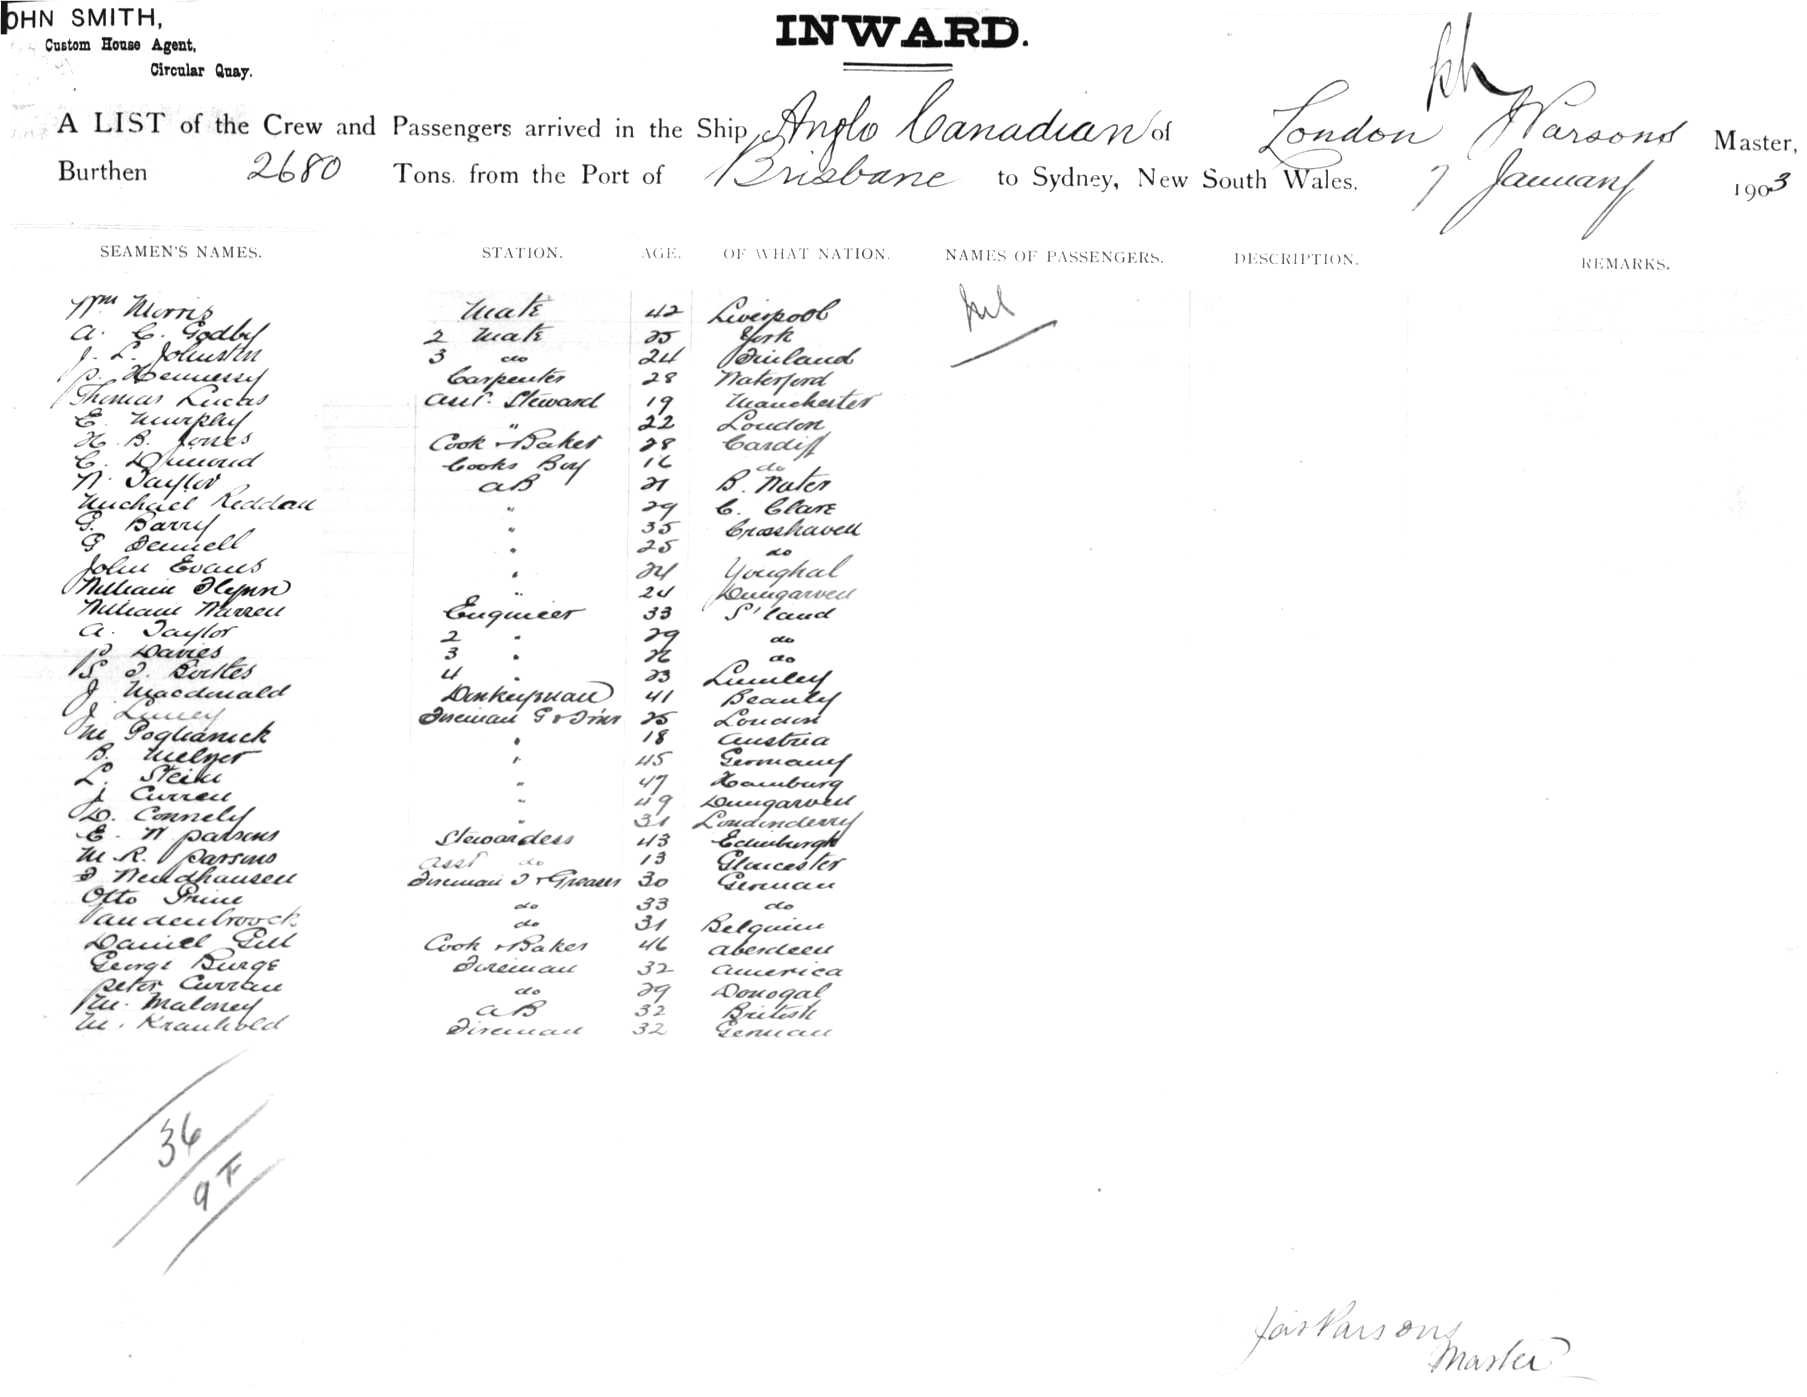 JOHN SMITH,
Custom House Agent,
Circular Quay.
INWARD.
A LIST of the Crew and Passengers arrived in the Ship Anglo Canadian of London J Parsons Master,
Burthen 2680 Tons from the Port of Brisbane to Sydney, New South Wales, 7 January 1903
SEAMEN'S NAMES. STATION. AGE. OF WHAT NATION. NAMES OF PASSENGERS. DESCRIPTION. REMARKS.
Wm Morris Mate 42 Liverpool Nil
A. C. Godby 2 Mate 25 York
J. L. Johnston 3 do 24 Finland
P. Hennessy Carpenter 28 Waterford
Thomas Lucas Asst. Steward 19 Manchester
E. Murphy " 22 London
H. B. Jones Cook & Baker 28 Cardiff
C. Dimond Cooks Boy 16 do
W. Taylor AB 21 B. Water
Michael Reddan " 29 C. Clare
G. Barry " 35 Crosshaven
G Fennell " 25 do
John Evans " 24 Youghal
William Flynn " 24 Dungarven
William Warren Engineer 33 S'land
A. Taylor 2 " 29 do
P Davies 3 " 26 do
4 " 23 Lumley
J Macdonald Donkeyman 41 Beauly
J Fireman G & Trimr 25 London
M " 18 Austria
B. Melzer " 45 Germany
L. Stein " 47 Hamburg
J Curren " 49 Dungarven
D. Connely " 31 Londonderry
E. W Parsons Stewardess 43 Edinburgh
M. R. Parsons Asst do 13 Gloucester
F Windhausen Fireman T & Greaser 30 German
Otto Prime do 33 do
Vandenbroock do 31 Belguim
Daniel Gill Cook & Baker 46 Aberdeen
George Burge Fireman 32 America
Peter Curran do 29 Donogal
M. Maloney AB 32 British
M. Kranhold Fireman 32 German
36
9 F
Jas Parsons
Master